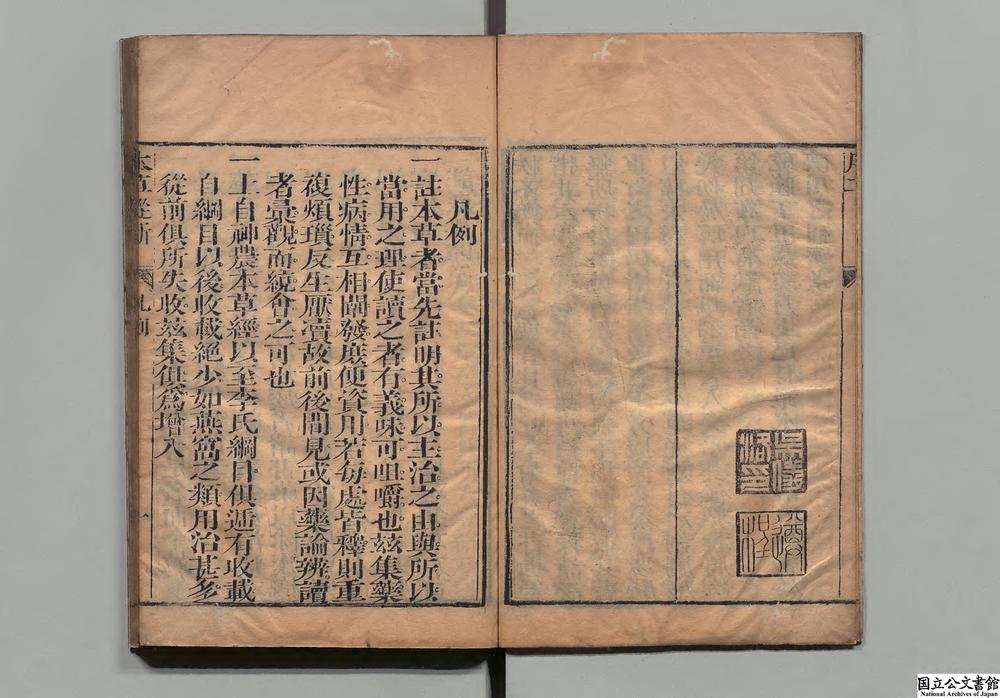 凡例
一註本草者當先註明其所以主治之由與所以
當用之理使讀之者有義味可咀嚼也茲集藥
性病情互相闡發庶便資用若每處皆釋則重
複煩瑣反生厭瀆故前後間見或因藥論辨讀
者彙觀而統會之可也
一上自神農本草經以至李氏綱目俱遞有收載
自綱目以後收載絕少如燕窩之類用治甚多
從前俱所失收茲集俱為增入
本草從新
凡例
一
国立公文書館
National Archives of Japan